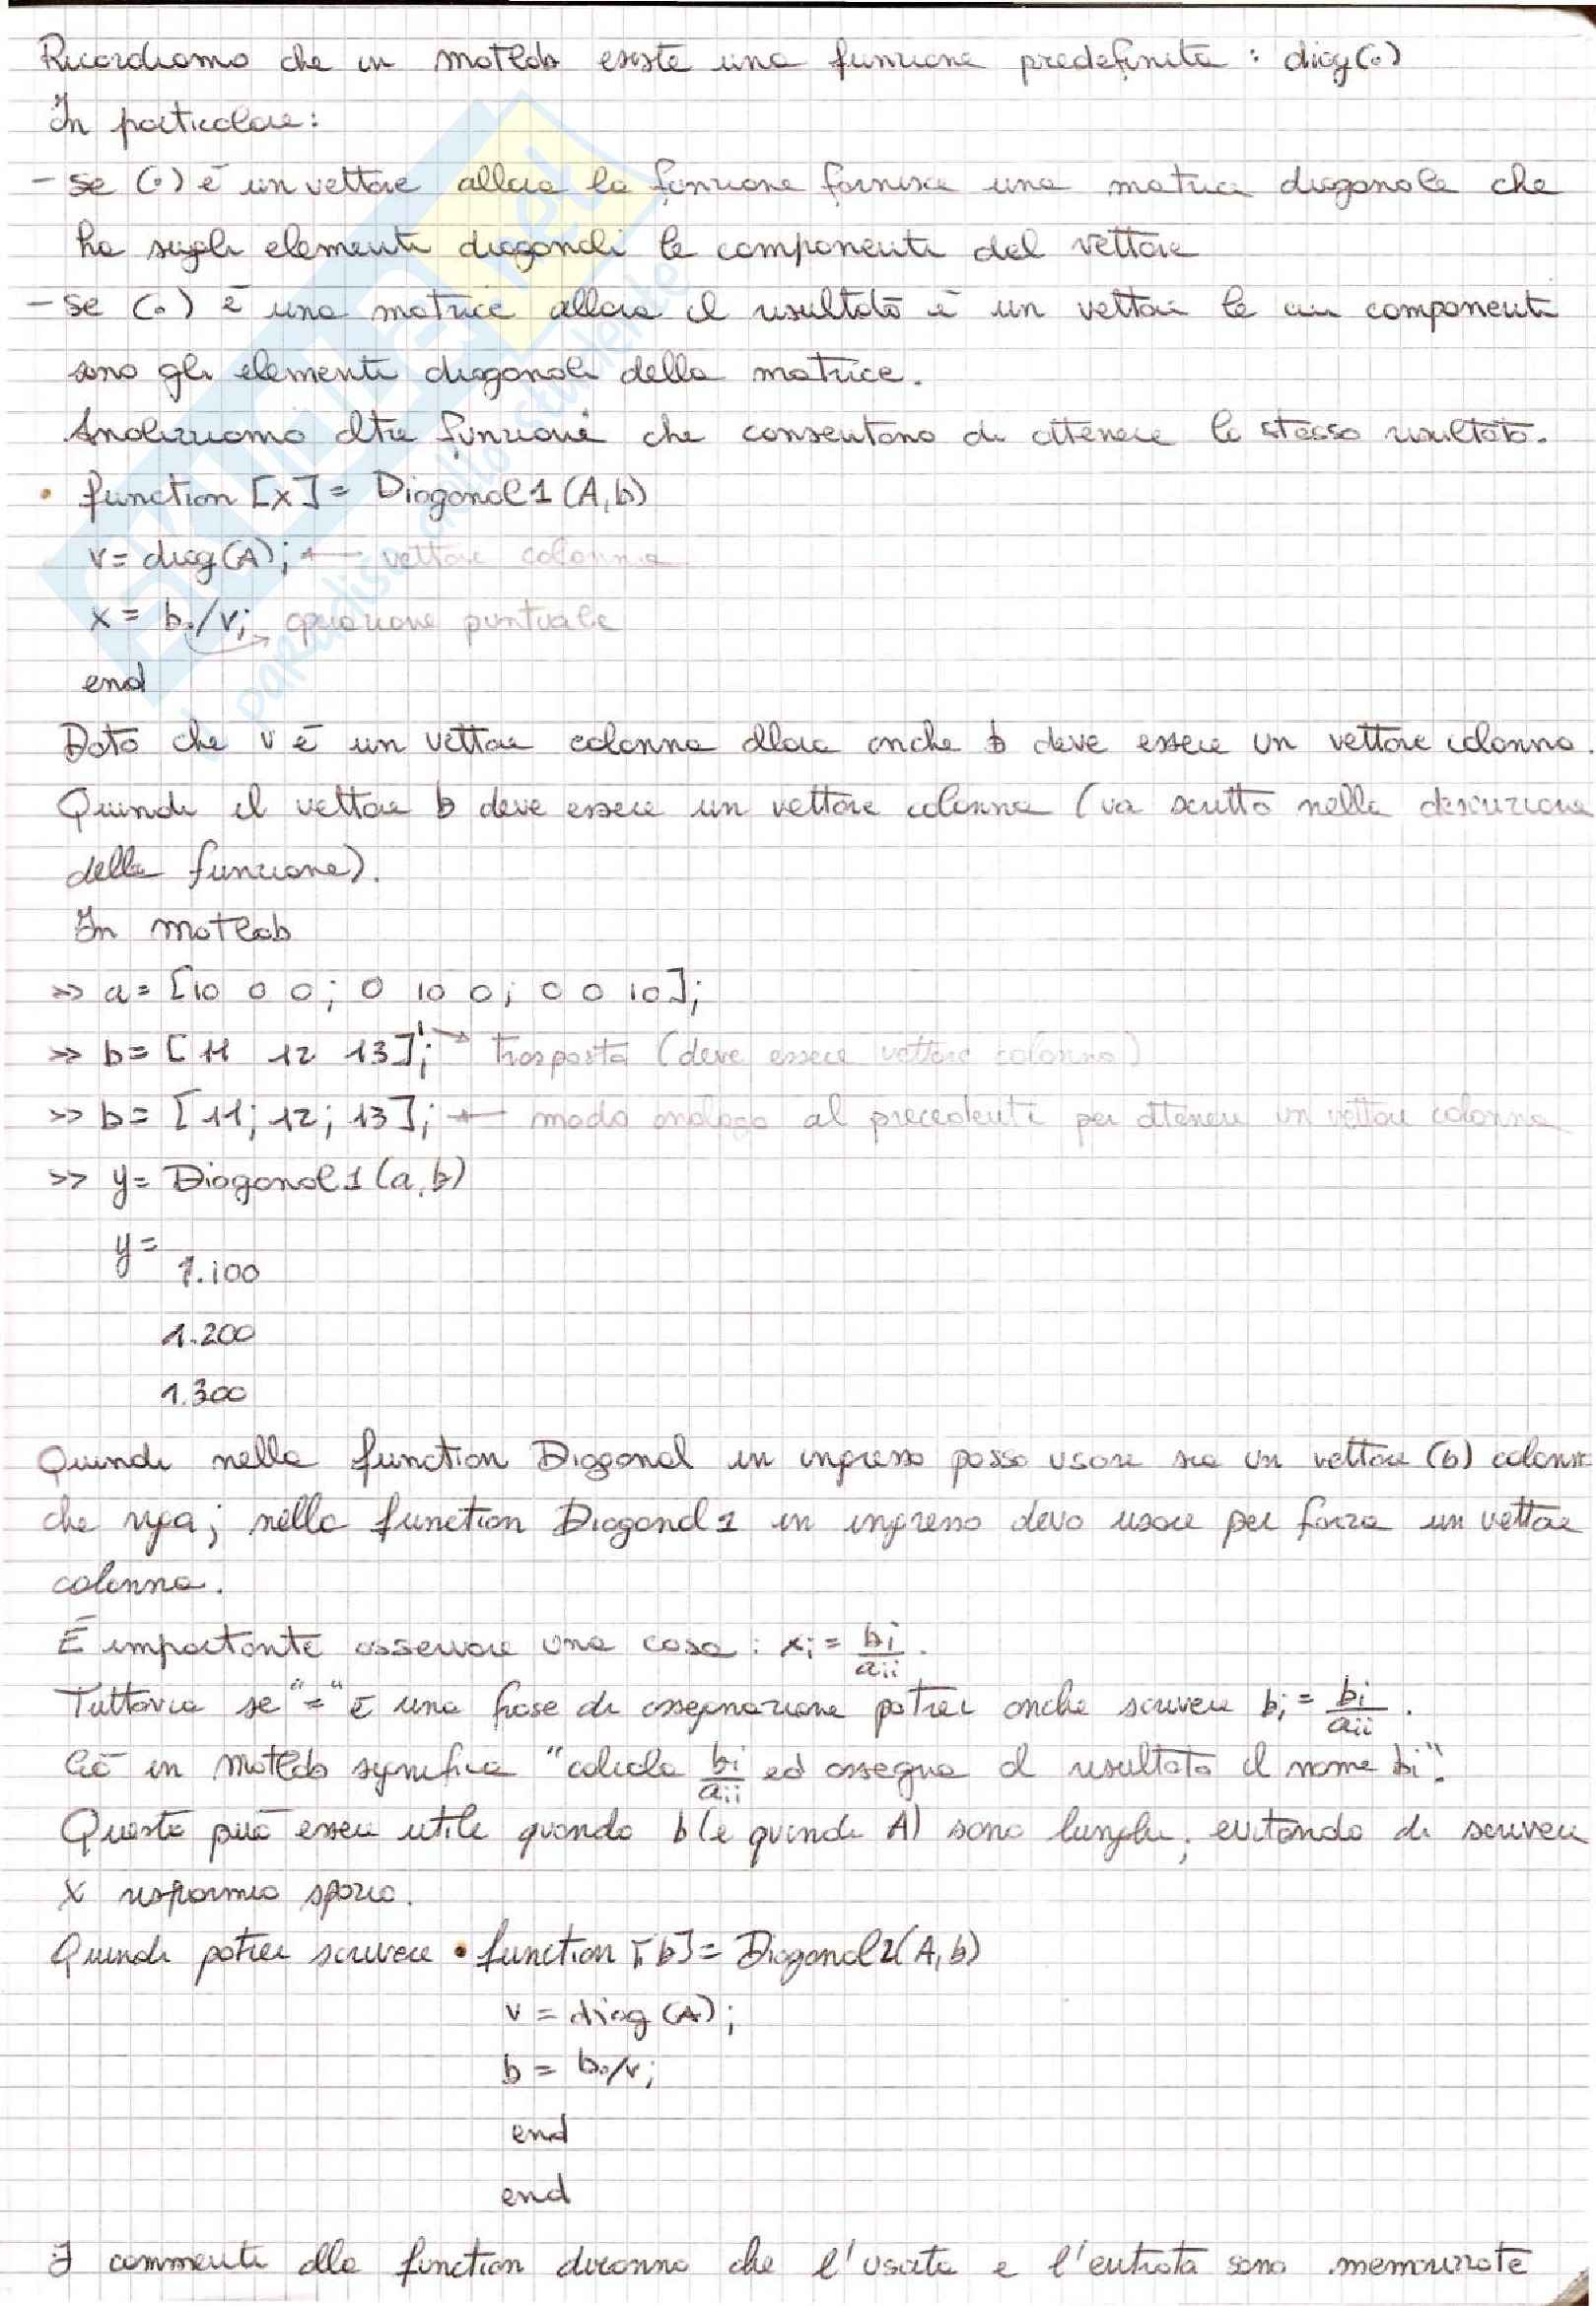 Ricordiamo che in matlab esiste una funzione predefinita : diag(.)
In particolare:
- se (.) è un vettore allora la funzione fornisce una matrice diagonale che
ha sugli elementi diagonali le componenti del vettore
- se (.) è una matrice allora il risultato è un vettore le cui componenti
sono gli elementi diagonali della matrice.
Analizziamo altre funzioni che consentono di ottenere lo stesso risultato.
• function [x] = Diagonal1 (A,b)
v = diag(A); ← vettore colonna
x = b./v; operazione puntuale
end
Dato che v è un vettore colonna allora anche b deve essere un vettore colonna.
Quindi il vettore b deve essere un vettore colonna (va scritto nella descrizione
della funzione).
In matlab
>> a = [10 0 0; 0 10 0; 0 0 10];
>> b = [11 12 13]'; → trasposta (deve essere vettore colonna)
>> b = [11; 12; 13]; ← modo analogo al precedente per ottenere un vettore colonna
>> y = Diagonal1 (a,b)
y =
1.100
1.200
1.300
Quindi nella function Diagonal in ingresso posso usare sia un vettore (b) colonna
che riga; nella function Diagonal1 in ingresso devo usare per forza un vettore
colonna.
È importante osservare una cosa : xi = bi/aii .
Tuttavia se "=" è una frase di assegnazione potrei anche scrivere bi = bi/aii .
Ciò in Matlab significa "calcola bi/aii ed assegna al risultato il nome bi".
Questo può essere utile quando b (e quindi A) sono lunghi; evitando di scrivere
x risparmio spazio.
Quindi potrei scrivere • function [b] = Diagonal2(A,b)
v = diag(A);
b = b./v;
end
end
I commenti alla function diranno che l'uscita e l'entrata sono memorizzate
skuola.net
il paradiso dello studente